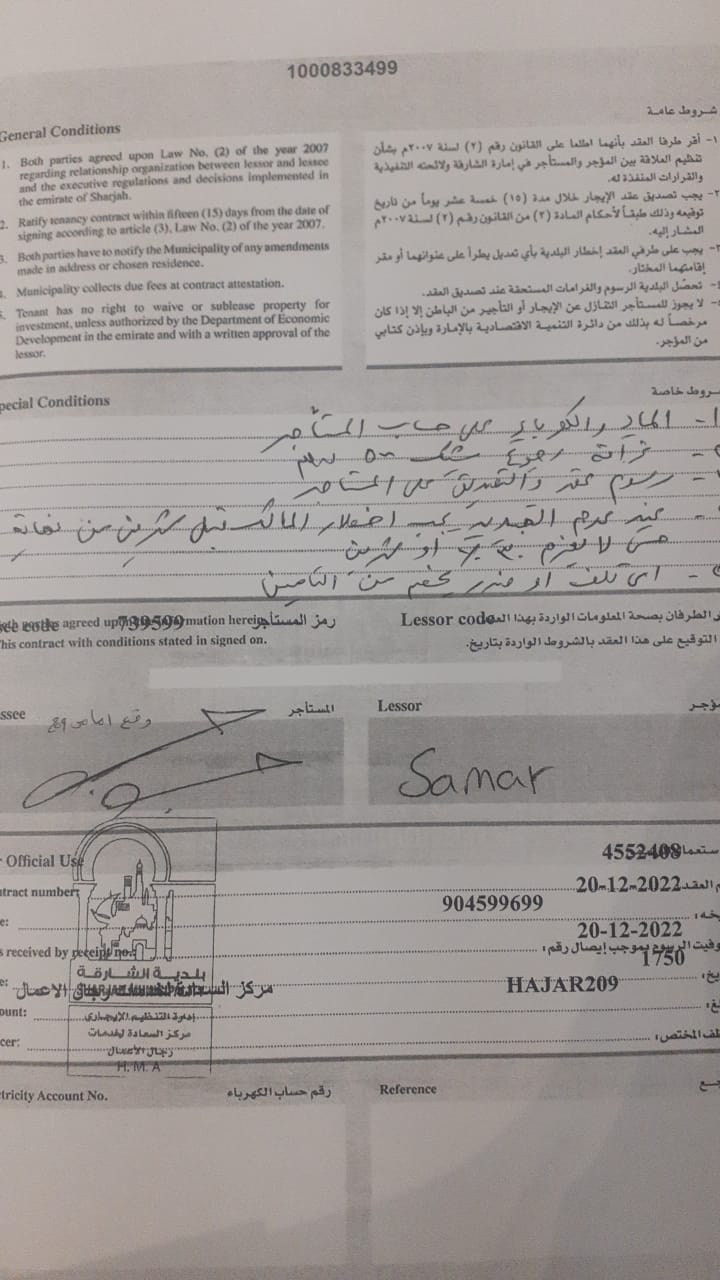 1000833499
General Conditions
1. Both parties agreed upon Law No. (2) of the year 2007
regarding relationship organization between lessor and lessee
and the executive regulations and decisions implemented in
the emirate of Sharjah.
2. Ratify tenancy contract within fifteen (15) days from the date of
signing according to article (3), Law No. (2) of the year 2007.
3. Both parties have to notify the Municipality of any amendments
made in address or chosen residence.
4. Municipality collects due fees at contract attestation.
5. Tenant has no right to waive or sublease property for
investment, unless authorized by the Department of Economic
Development in the emirate and with a written approval of the
lessor.
شروط عامة
١- أقر طرفا العقد بأنهما اطلعا على القانون رقم (٢) لسنة ٢٠٠٧م بشأن
تنظيم العلاقة بين المؤجر والمستأجر في إمارة الشارقة ولائحته التنفيذية
والقرارات المنفذة له.
٢- يجب تصديق عقد الإيجار خلال مدة (١٥) خمسة عشر يوماً من تاريخ
توقيعه وذلك طبقاً لأحكام المادة (٣) من القانون رقم (٢) لسنة ٢٠٠٧م
المشار إليه.
٣- يجب على طرفي العقد إخطار البلدية بأي تعديل يطرأ على عنوانهما أو مقر
إقامتهما المختار.
٤- تحصّل البلدية الرسوم والغرامات المستحقة عند تصديق العقد.
٥- لا يجوز للمستأجر التنازل عن الإيجار أو التأجير من الباطن إلا إذا كان
مرخصاً له بذلك من دائرة التنمية الاقتصادية بالإمارة وبإذن كتابي
من المؤجر.
pecial Conditions
شروط خاصة
١- الماء والكهرباء على حساب المستأجر
غرامة رجوع شيك ٥٠٠ درهم
رسوم عقد والتصديق على المستأجر
عند عدم التجديد يجب اخطار المالك قبل شهرين من نهاية
حتى لا يغرم أو شهرين
- اى تلف او ضرر يخصم من التأمين
739599 رمز المستأجر
Lessor code
Both parties agreed upon information herein
This contract with conditions stated in signed on.
الطرفان بصحة المعلومات الواردة بهذا
التوقيع على هذا العقد بالشروط الواردة بتاريخ.
ssee
المستأجر
Lessor
مؤجر
وقع امامى
Samar
Official Use
4552408
tract number:
20-12-2022
904599699
20-12-2022
s received by receipt no.:
1750
HAJAR209
مركز السعادة لخدمات رجال الاعمال
ount:
cer:
بلدية الشارقة
إدارة التنظيم الإيجاري
مركز السعادة لخدمات
رجال الأعمال
H.M.A
tricity Account No.
رقم حساب الكهرباء
Reference